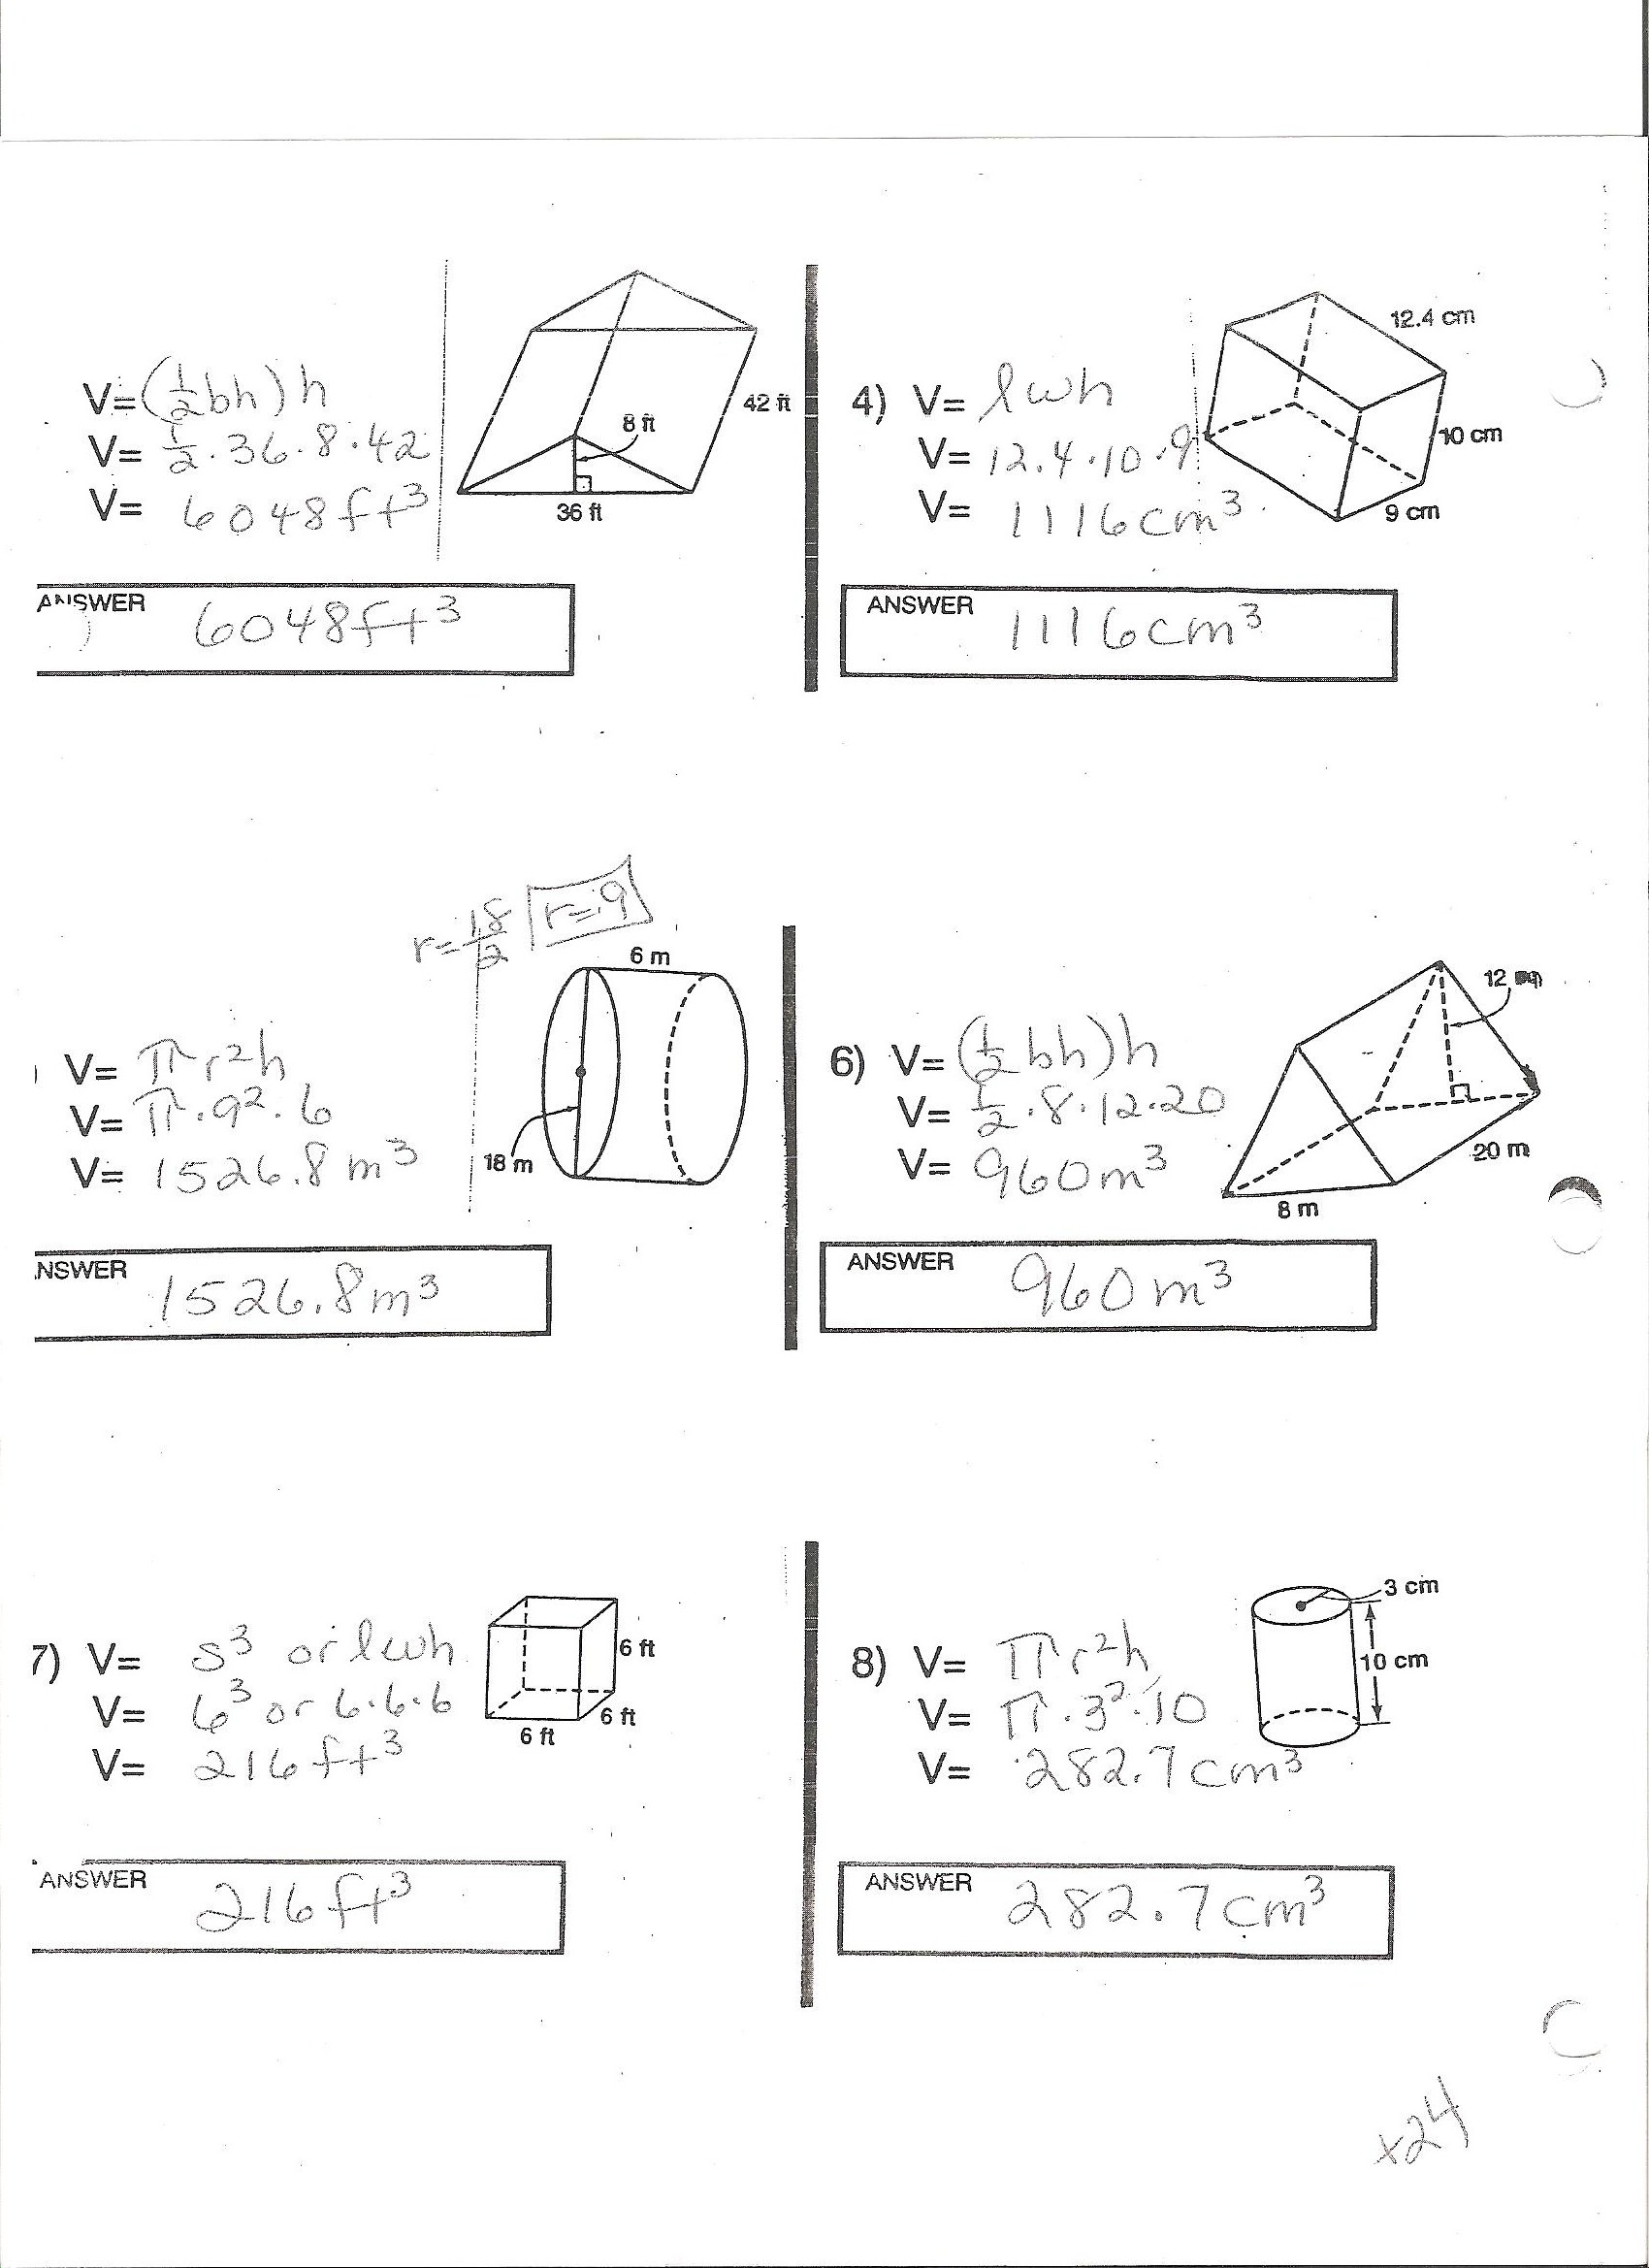 V=(1/2 bh)h
V= 1/2·36·8·42
V= 6048ft³
42 ft
8 ft
36 ft
ANSWER 6048ft³
4) V= lwh
V= 12.4·10·9
V= 1116cm³
12.4 cm
10 cm
9 cm
ANSWER 1116cm³
r=18/2 r=9
6 m
) V= πr²h
V= π·9²·6
V= 1526.8m³
18 m
NSWER 1526.8m³
6) V=(1/2 bh)h
V= 1/2·8·12·20
V= 960m³
12
20 m
8 m
ANSWER 960m³
7) V= s³ or lwh
V= 6³ or 6·6·6
V= 216ft³
6 ft
6 ft
6 ft
ANSWER 216ft³
8) V= πr²h
V= π·3²·10
V= 282.7cm³
3 cm
10 cm
ANSWER 282.7cm³
x24